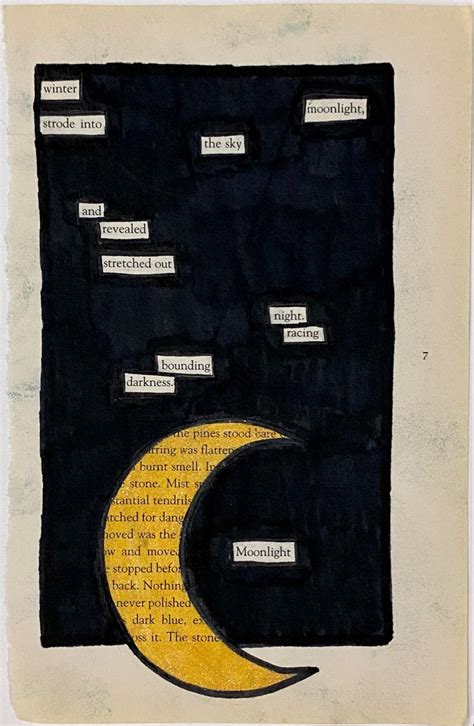 winter
moonlight,
strode into
the sky
and
revealed
stretched out
night.
racing
bounding
darkness.
7
the pines stood bare
rring was flatten
burnt smell. In
stone. Mist
stantial tendrils
tched for dang
moved was the
ow and moved
stopped befor
back. Nothing
never polished
dark blue, ex
oss it. The stone
Moonlight